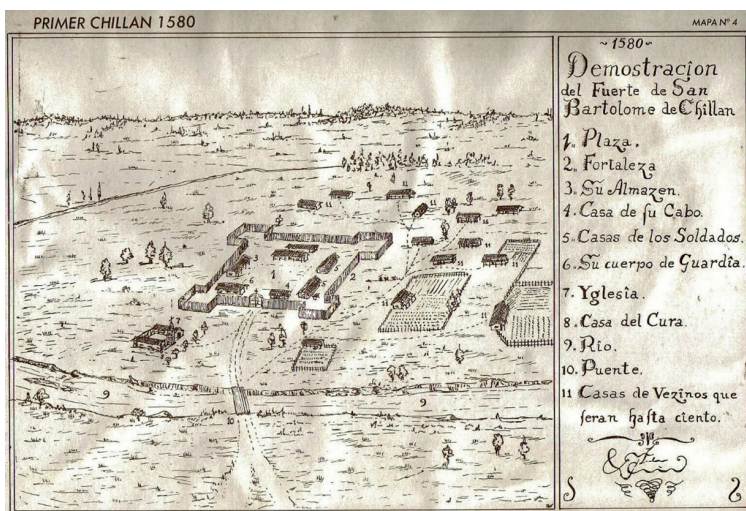 PRIMER CHILLAN 1580
MAPA Nº 4
~1580~
Demostracion
del Fuerte de San
Bartolome de Chillan
1. Plaza.
2. Fortaleza
3. Su Almazen.
4. Casa de su Cabo.
5. Casas de los Soldados.
6. Su cuerpo de Guardia.
7. Yglesia.
8. Casa del Cura.
9. Rio.
10. Puente.
11 Casas de Vezinos que
seran hasta ciento.
11
11
11
11
11
11
11
3
1
2
5
4
11
7
9
9
10